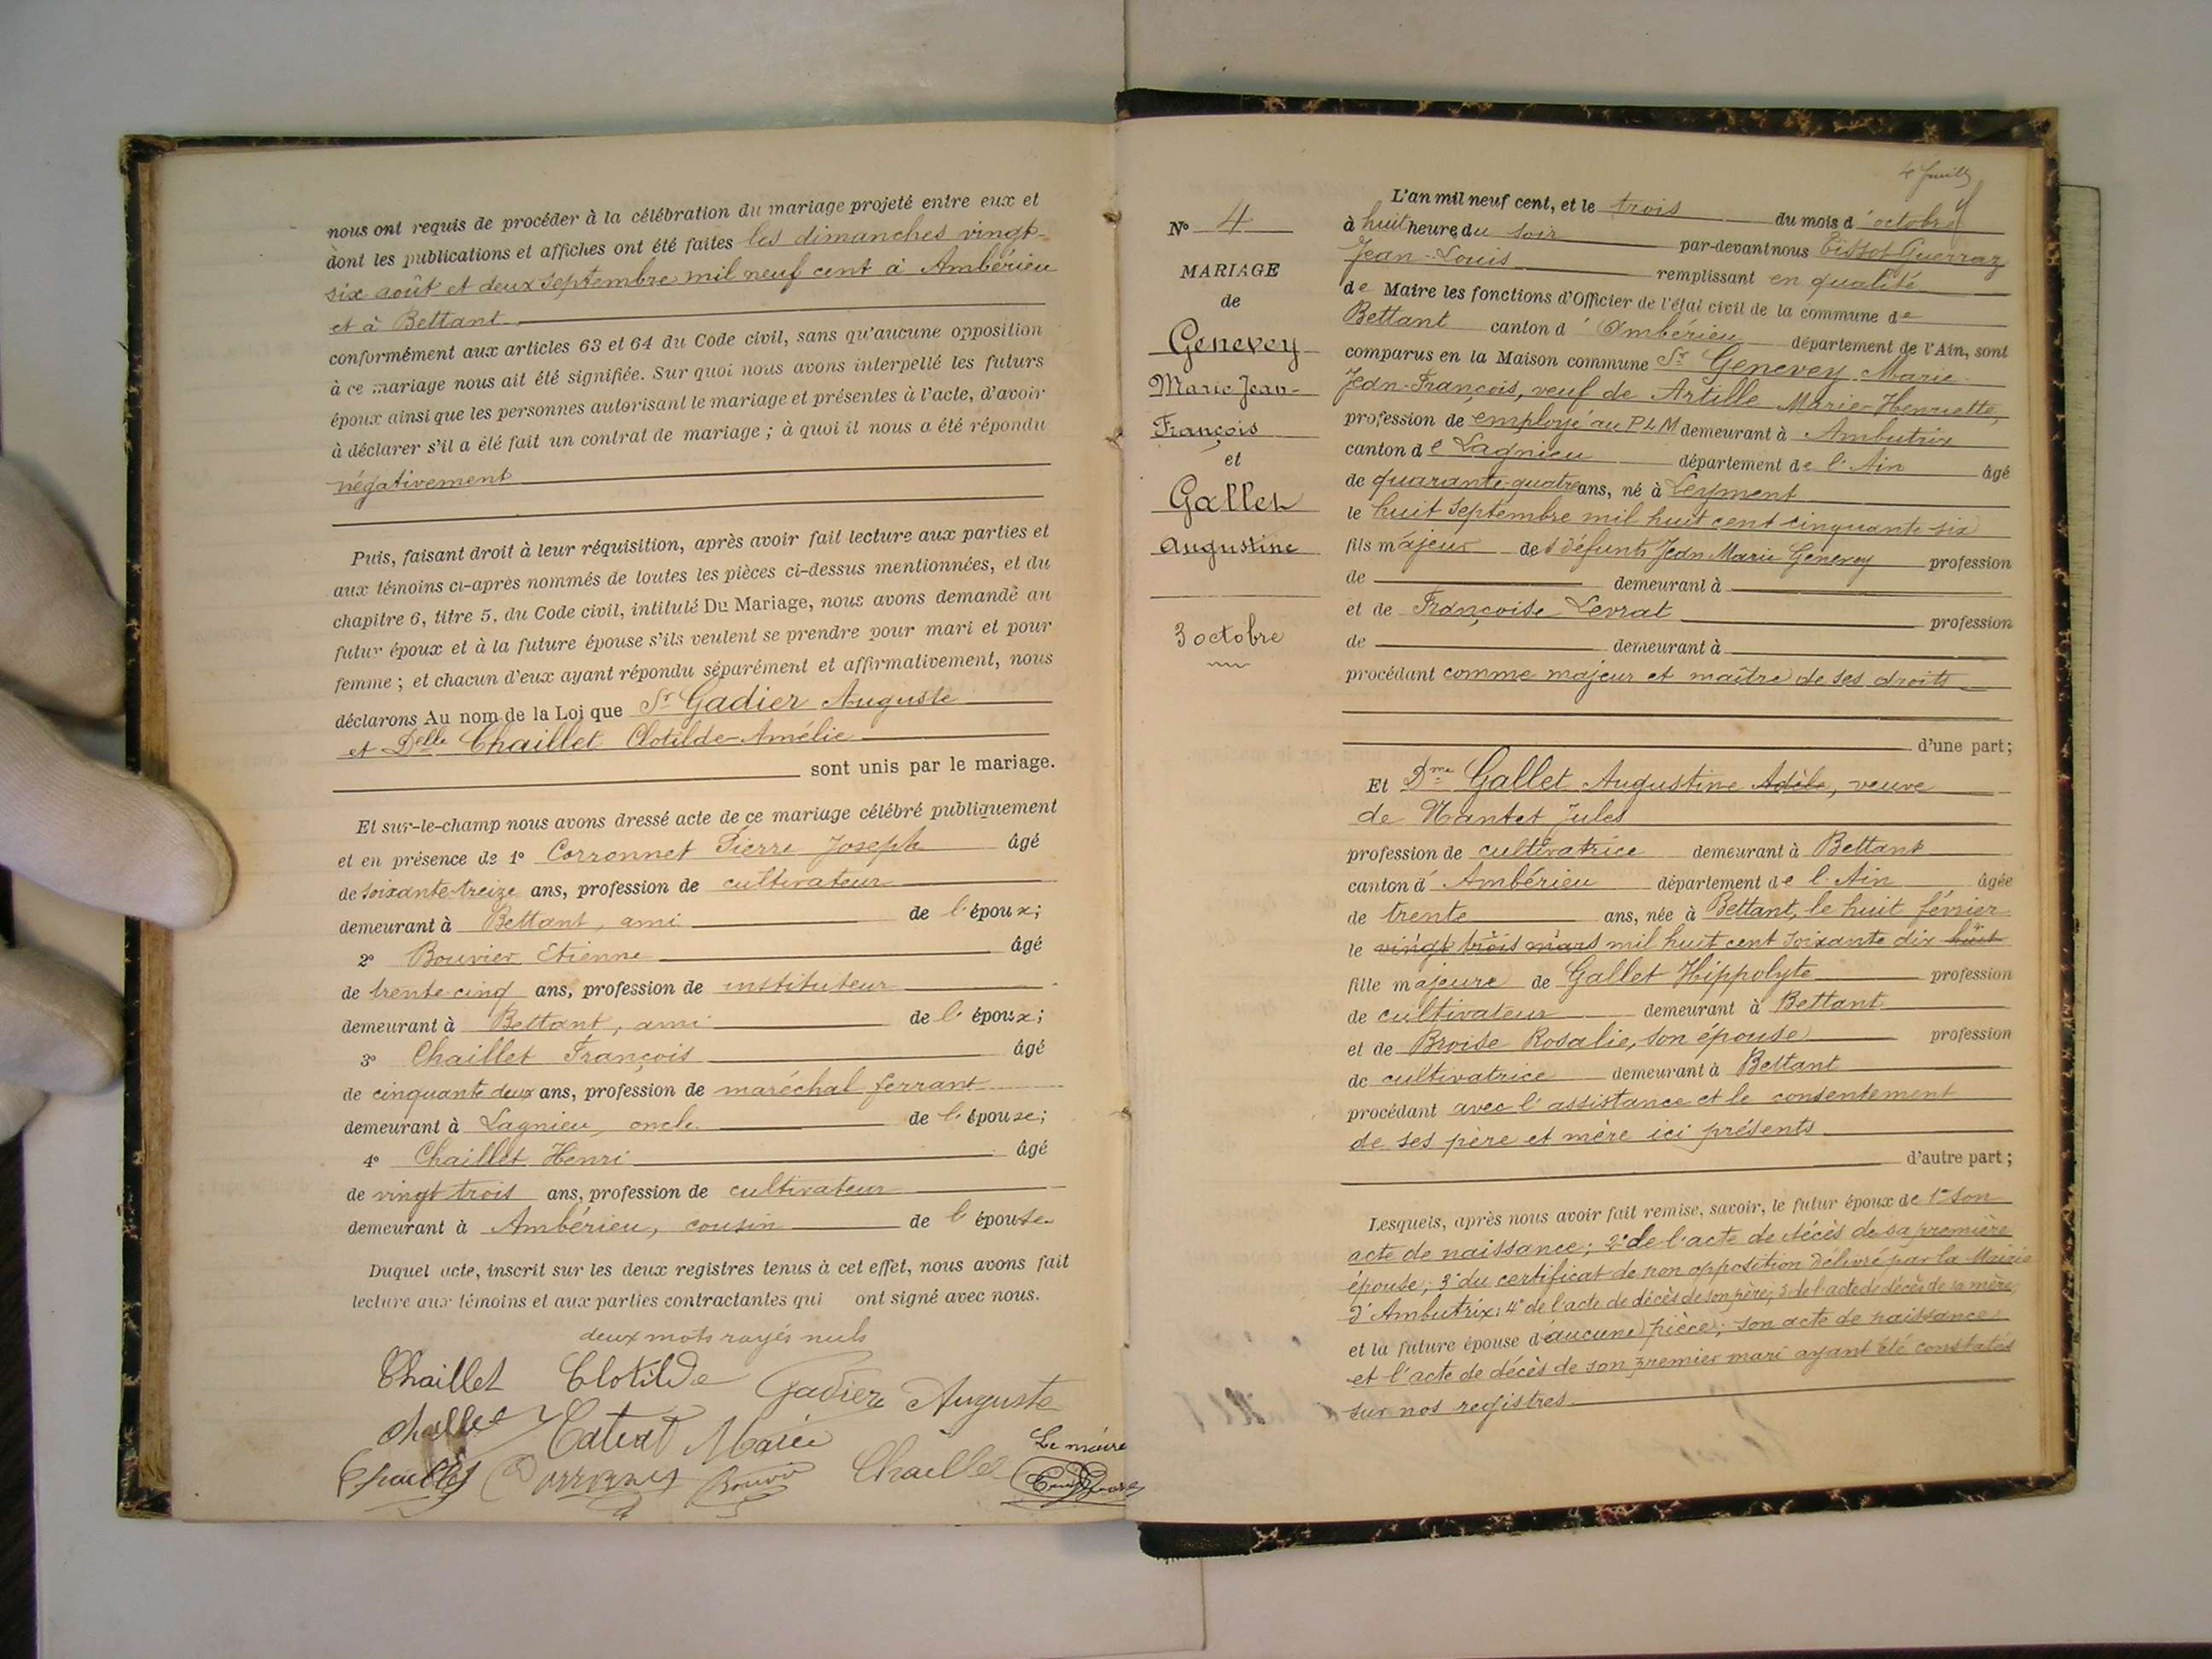 nous ont requis de procéder à la célébration du mariage projeté entre eux et
dont les publications et affiches ont été faites les dimanches vingt-
six août et deux septembre mil neuf cent à Ambérieu
et à Bettant
conformément aux articles 63 et 64 du Code civil, sans qu'aucune opposition
à ce mariage nous ait été signifiée. Sur quoi nous avons interpellé les futurs
époux ainsi que les personnes autorisant le mariage et présentes à l'acte, d'avoir
à déclarer s'il a été fait un contrat de mariage ; à quoi il nous a été répondu
négativement
Puis, faisant droit à leur réquisition, après avoir fait lecture aux parties et
aux témoins ci-après nommés de toutes les pièces ci-dessus mentionnées, et du
chapitre 6, titre 5, du Code civil, intitulé Du Mariage, nous avons demandé au
futur époux et à la future épouse s'ils veulent se prendre pour mari et pour
femme ; et chacun d'eux ayant répondu séparément et affirmativement, nous
déclarons Au nom de la Loi que Sr Gadier Auguste
et Delle Chaillet Clotilde-Amélie
sont unis par le mariage.
Et sur-le-champ nous avons dressé acte de ce mariage célébré publiquement
et en présence de 1° Corronnet Pierre Joseph âgé
de soixante-treize ans, profession de cultivateur
demeurant à Bettant, ami de l'époux;
2° Bouvier Etienne âgé
de trente-cinq ans, profession de instituteur
demeurant à Bettant, ami de l'époux;
3° Chaillet François âgé
de cinquante deux ans, profession de maréchal ferrant
demeurant à Lagnieu, oncle de l'épouse;
4° Chaillet Henri âgé
de vingt trois ans, profession de cultivateur
demeurant à Ambérieu, cousin de l'épouse
Duquel acte, inscrit sur les deux registres tenus à cet effet, nous avons fait
lecture aux témoins et aux parties contractantes qui ont signé avec nous.
deux mots rayés nuls
Chaillet Clotilde Gadier Auguste
Marie
Chaillet
Le maire
4 feuille
N° 4
MARIAGE
de
Genevey
Marie Jean-
François
et
Gallet
Augustine
3 octobre
L'an mil neuf cent, et le trois du mois d'octobre
à huit heure du soir par-devant nous Tissot Guerraz
Jean-Louis remplissant en qualité
de Maire les fonctions d'Officier de l'état civil de la commune de
Bettant canton d'Ambérieu département de l'Ain, sont
comparus en la Maison commune Sr Genevey Marie
Jean-François, veuf de Artille Marie-Henriette,
profession de employé au PLM demeurant à Ambutrix
canton de Lagnieu département de l'Ain âgé
de quarante-quatre ans, né à Leyment
le huit septembre mil huit cent cinquante-six
fils majeur des défunts Jean Marie Genevey profession
de demeurant à
et de Françoise Levrat profession
de demeurant à
procédant comme majeur et maître de ses droits
d'une part;
Et Dme Gallet Augustine Adèle, veuve
de Nantet Jules
profession de cultivatrice demeurant à Bettant
canton d'Ambérieu département de l'Ain âgée
de trente ans, née à Bettant, le huit février
le vingt trois mars mil huit cent soixante dix huit
fille majeure de Gallet Hippolyte profession
de cultivateur demeurant à Bettant
et de Broise Rosalie, son épouse profession
de cultivatrice demeurant à Bettant
procédant avec l'assistance et le consentement
de ses père et mère ici présents
d'autre part;
Lesquels, après nous avoir fait remise, savoir, le futur époux de 1° son
acte de naissance; 2° de l'acte de décès de sa première
épouse; 3° du certificat de non opposition délivré par la Mairie
d'Ambutrix; 4° de l'acte de décès de son père; 5 de l'acte de décès de sa mère,
et la future épouse d'aucune pièce; son acte de naissance
et l'acte de décès de son premier mari ayant été constatés
sur nos registres.